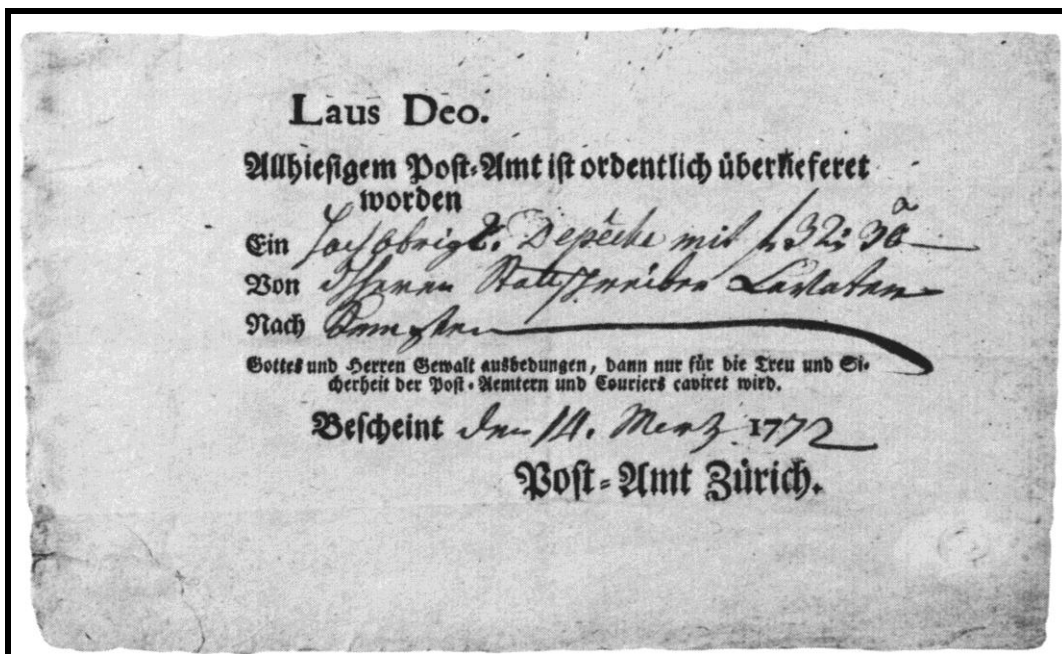 Laus Deo.
Allhiesigem Post-Amt ist ordentlich überlieferet
worden
Ein hochObrigk. Depêche mit f 32: 30
Von Hherren Stattschreiber Lavater
Nach
Gottes und Herren Gewalt ausbedungen, dann nur für die Treu und Si-
cherheit der Post-Aemtern und Couriers caviret wird.
Bescheint den 14. Mertz 1772
Post-Amt Zürich.